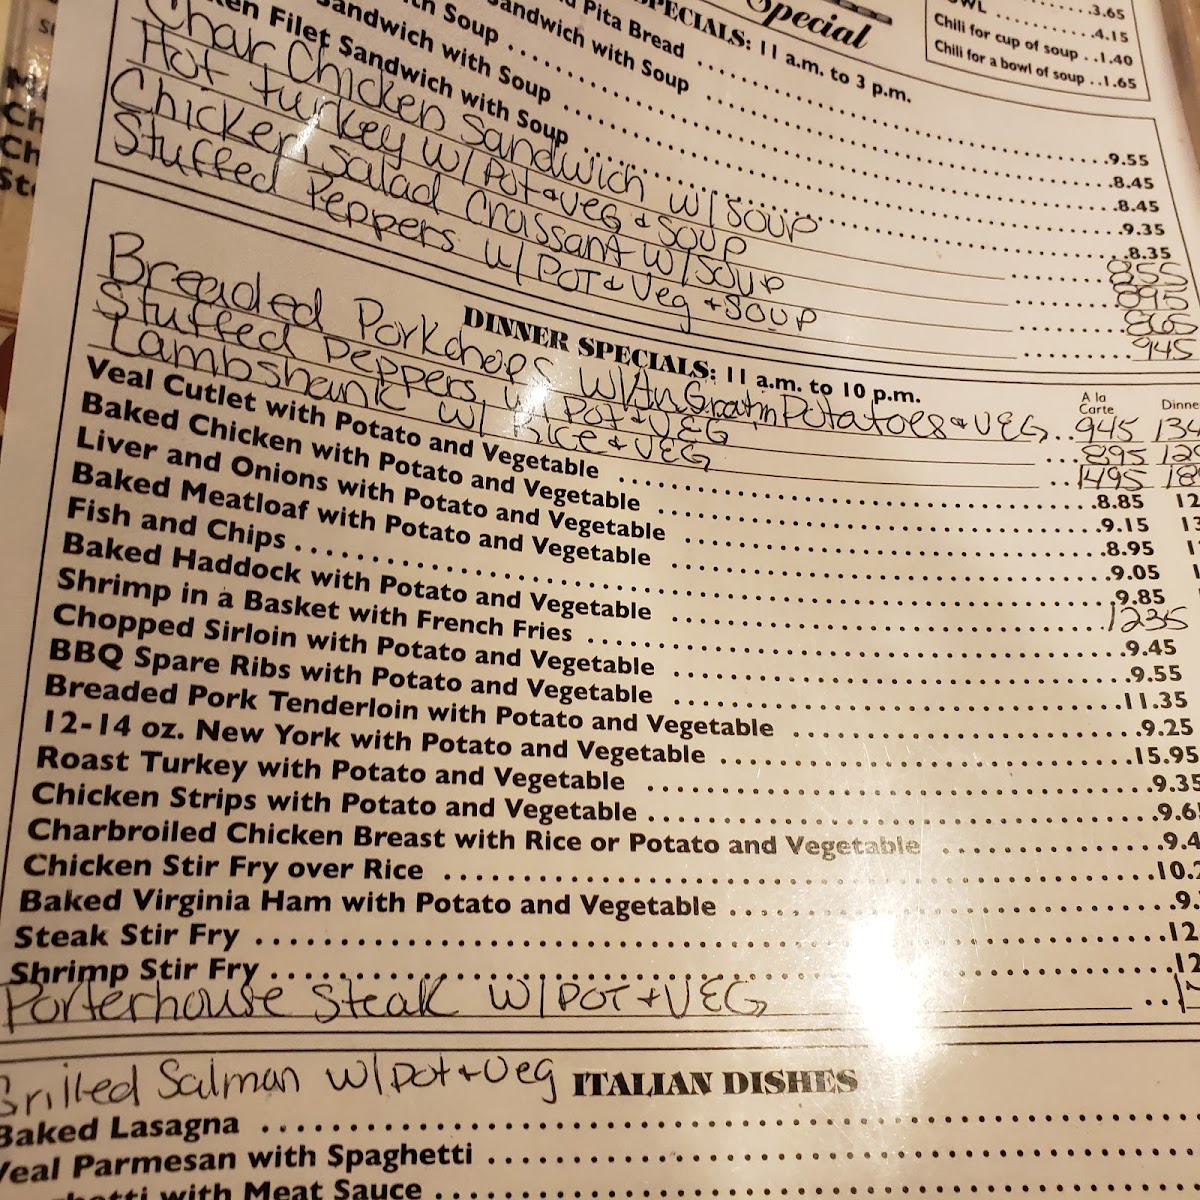 Special
SPECIALS: 11 a.m. to 3 p.m.
Pita Bread
Sandwich with Soup
with Soup
Sandwich with Soup
Filet Sandwich with Soup
3.65
4.15
Chili for cup of soup ..1.40
Chili for a bowl of soup ..1.65
.9.55
.8.45
.8.45
.9.35
.8.35
Char Chicken Sandwich w/ SOUP 855
Hot Turkey w/ POT & VEG & SOUP 895
Chicken Salad Croissant w/ SOUP 865
Stuffed Peppers w/ POT & Veg + SOUP 945
DINNER SPECIALS: 11 a.m. to 10 p.m.
A la Carte
Dinne
Breaded Porkchops w/ Au Gratin Potatoes & VEG ..945 134
Stuffed Peppers w/ POT & VEG ...895 129
Lambshank w/ Rice & VEG ..1495 189
Veal Cutlet with Potato and Vegetable .8.85 12
Baked Chicken with Potato and Vegetable .9.15 13
Liver and Onions with Potato and Vegetable .8.95
Baked Meatloaf with Potato and Vegetable .9.05
Fish and Chips .9.85
Baked Haddock with Potato and Vegetable 1235
Shrimp in a Basket with French Fries .9.45
Chopped Sirloin with Potato and Vegetable .9.55
BBQ Spare Ribs with Potato and Vegetable .11.35
Breaded Pork Tenderloin with Potato and Vegetable .9.25
12-14 oz. New York with Potato and Vegetable .15.95
Roast Turkey with Potato and Vegetable .9.35
Chicken Strips with Potato and Vegetable .9.6
Charbroiled Chicken Breast with Rice or Potato and Vegetable .9.4
Chicken Stir Fry over Rice .10.
Baked Virginia Ham with Potato and Vegetable .9.
Steak Stir Fry .12
Shrimp Stir Fry .12
Porterhouse Steak w/ POT + VEG
Grilled Salman w/ pot + veg
ITALIAN DISHES
Baked Lasagna
Veal Parmesan with Spaghetti
with Meat Sauce